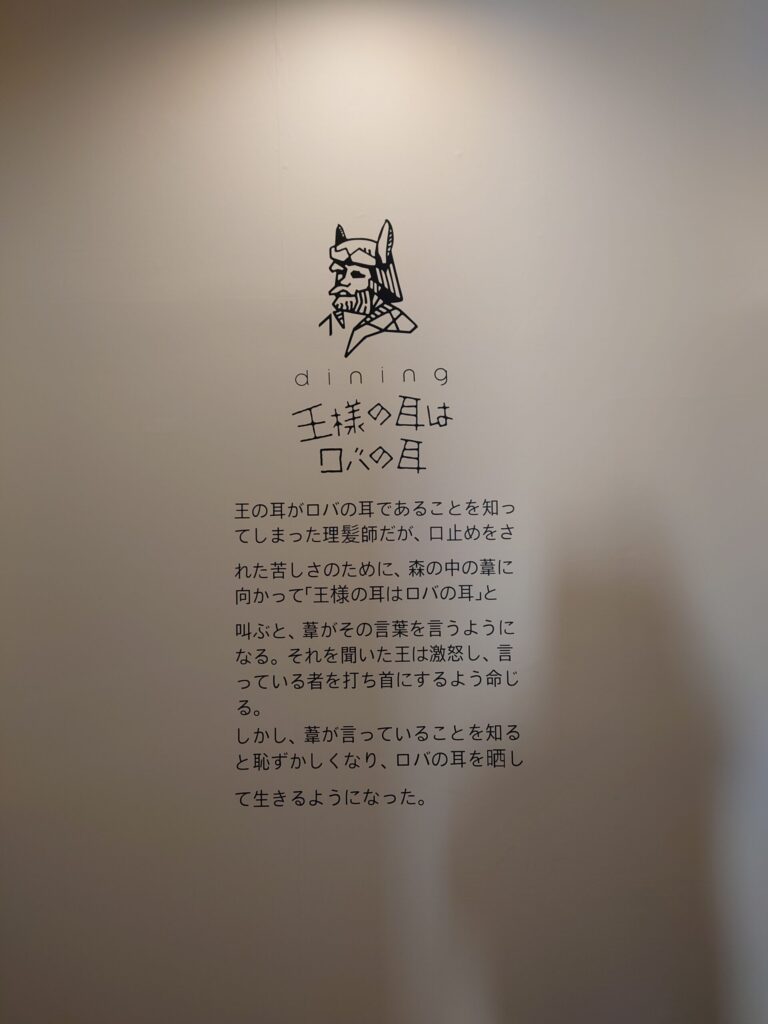 dining
王様の耳は
ロバの耳
王の耳がロバの耳であることを知っ
てしまった理髪師だが、口止めをさ
れた苦しさのために、森の中の葦に
向かって｢王様の耳はロバの耳｣と
叫ぶと、葦がその言葉を言うように
なる。それを聞いた王は激怒し、言
っている者を打ち首にするよう命じ
る。
しかし、葦が言っていることを知る
と恥ずかしくなり、ロバの耳を晒し
て生きるようになった。